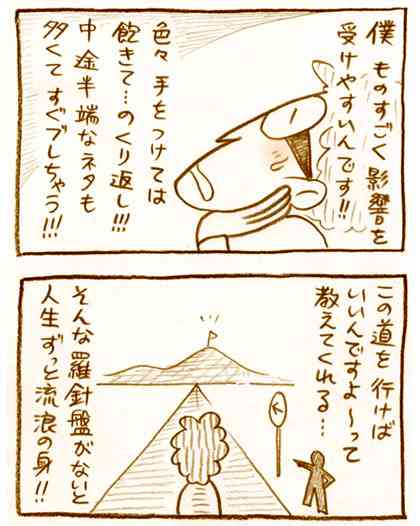 僕ものすごく影響を
受けやすいんです!!
色々手をつけては
飽きて…のくり返し!!!
中途半端なネタも
多くてすぐブレちゃう!!!
この道を行けば
いいんですよ〜って
教えてくれる…
そんな羅針盤がないと
人生ずっと流浪の身!!